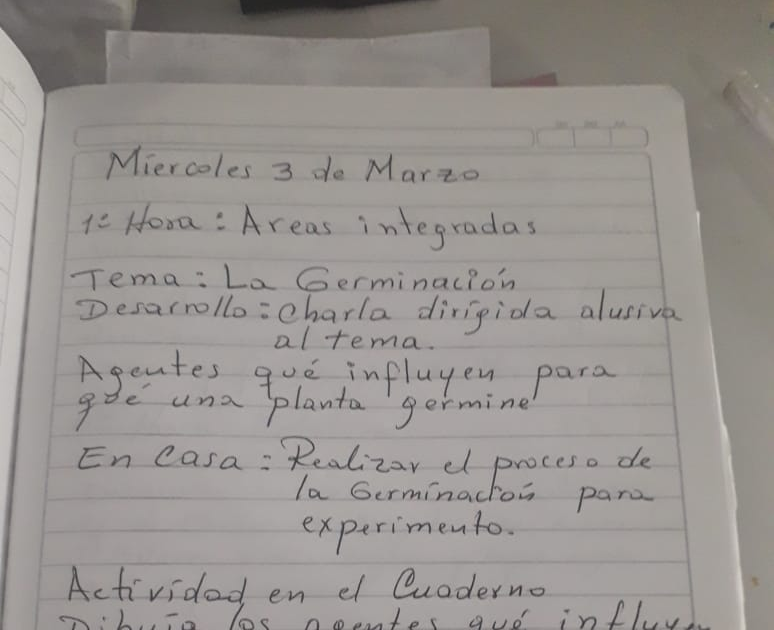 Miercoles 3 de Marzo
1º Hora: Areas integradas
Tema: La Germinación
Desarrollo: Charla dirigida alusiva
al tema.
Agentes qué influyen para
qué una planta germine
En Casa: Realizar el proceso de
la Germinación para
experimento.
Actividad en el Cuaderno
Dibuja los agentes qué influyen